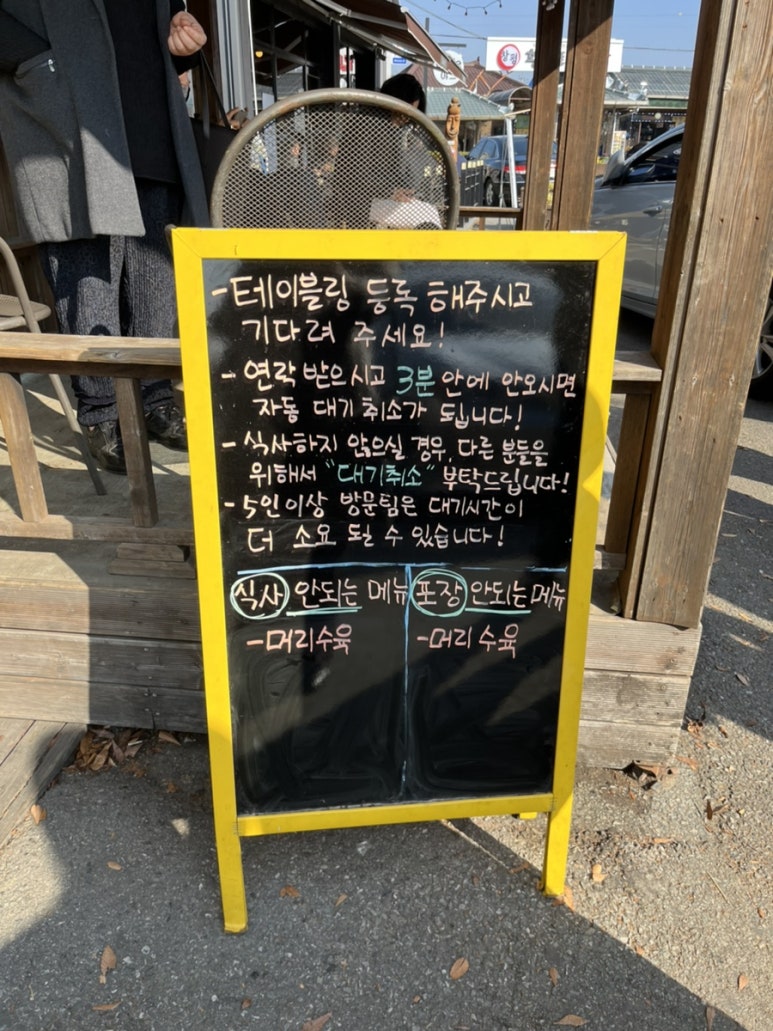 - 테이블링 등록 해주시고
기다려 주세요!
- 연락 받으시고 3분 안에 안오시면
자동 대기 취소가 됩니다!
- 식사하지 않으실 경우, 다른 분들을
위해서 "대기취소" 부탁드립니다!
- 5인이상 방문팀은 대기시간이
더 소요 될 수 있습니다!
식사 안되는 메뉴
- 머리수육
포장 안되는 메뉴
- 머리 수육